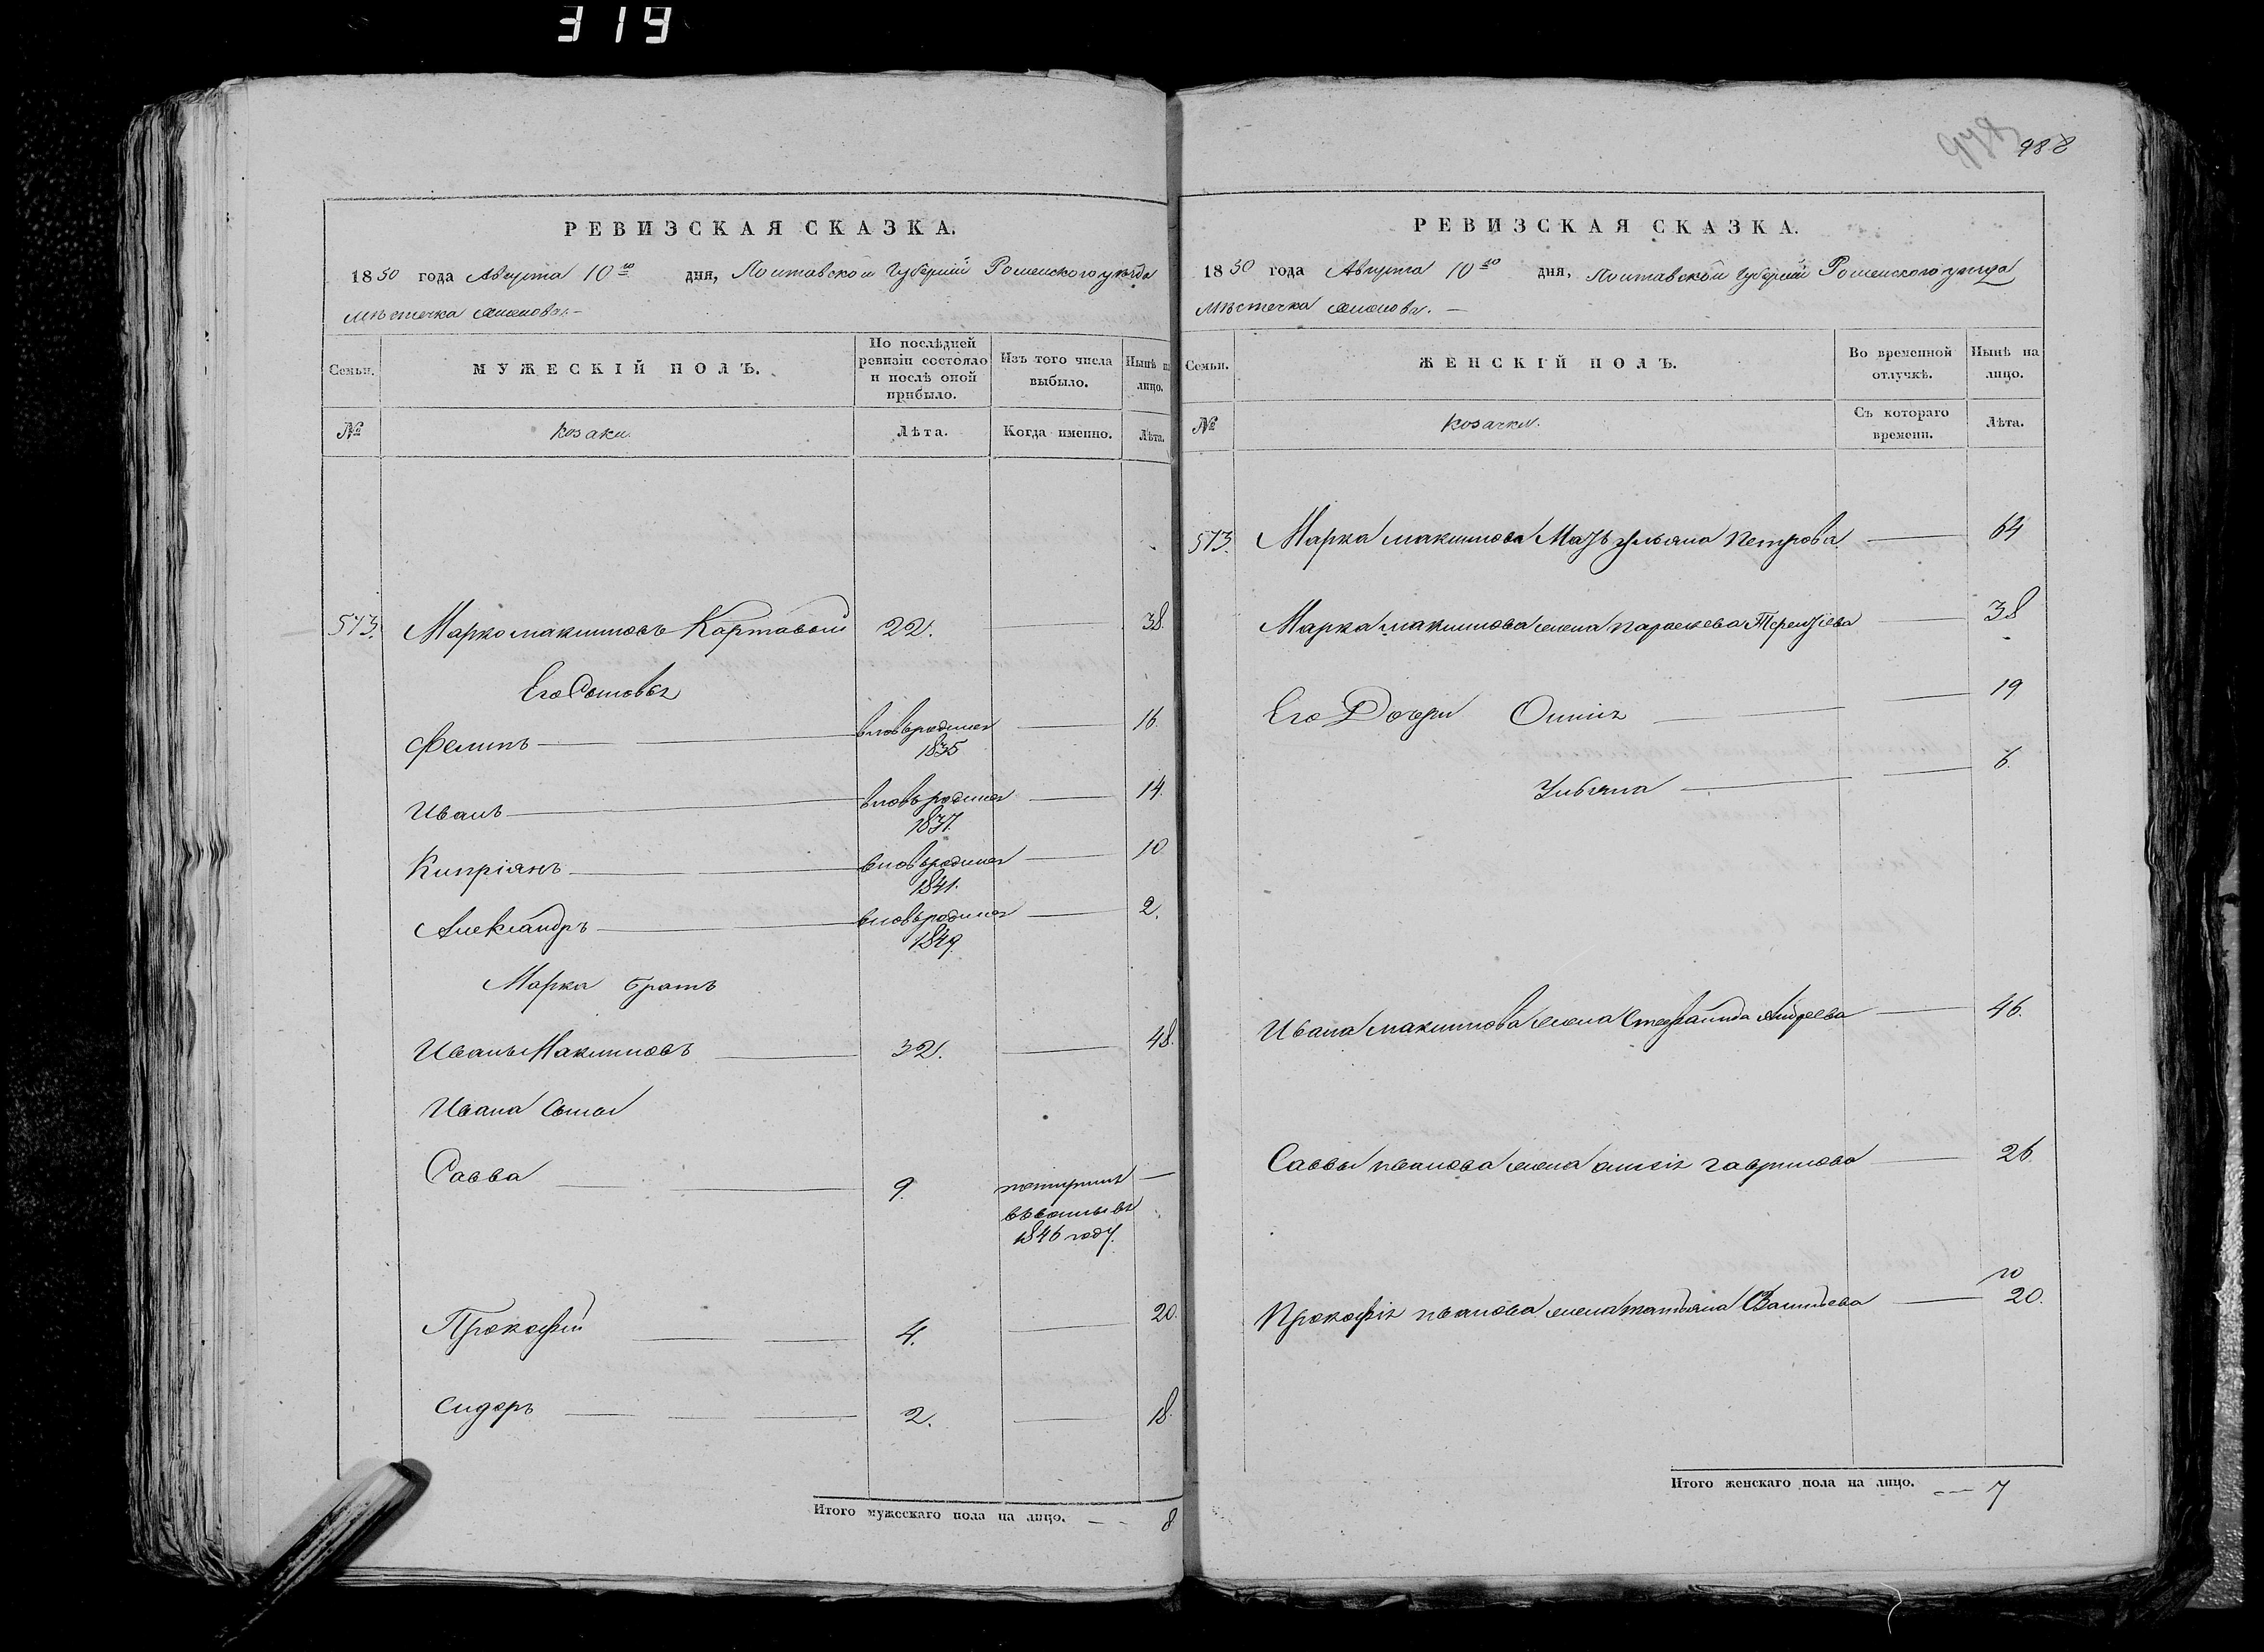 319
988
РЕВИЗСКАЯ СКАЗКА.
1850 года Августа 10го дня, Полтавской Губернии Роменского уѣзда
Мѣстечка
Семьи. МУЖЕСКІЙ ПОЛЪ. По послѣдней ревизіи состояло и послѣ оной прибыло. Изъ того числа выбыло. Нынѣ на лицо.
№ Козаки. Лѣта. Когда именно. Лѣта.
573. Марко Максимовъ Картавый 22. 38.
Его Сыновья
Филипъ вновьродился 1835 16.
Иванъ вновьродился 1837. 14.
Кипріянъ вновьродился 1841. 10.
Александръ вновьродился 1849 2.
Марка братъ
Иванъ Максимовъ 32. 48.
Ивана Сыны
Савва 9.
1846 году.
Прокофій 4. 20.
Сидоръ 2. 18.
Итого мужескаго пола на лицо. 8
РЕВИЗСКАЯ СКАЗКА.
1850 года Августа 10го дня, Полтавской Губернии Роменского уѣзда
Мѣстечка
Семьи. ЖЕНСКІЙ ПОЛЪ. Во временной отлучкѣ. Нынѣ на лицо.
№ Козачки. Съ котораго времени. Лѣта.
573. Марка Максимова Мать Ульяна Петрова 64
Марка Максимова жена Параскева Терентіева 38
Его Дочери 19
6.
Ивана Максимова жена Стефанида Андреева 46.
Саввы Иванова жена Гаврилова 26.
Прокофія Иванова жена Татьяна Васильева 20.
Итого женскаго пола на лицо. 7